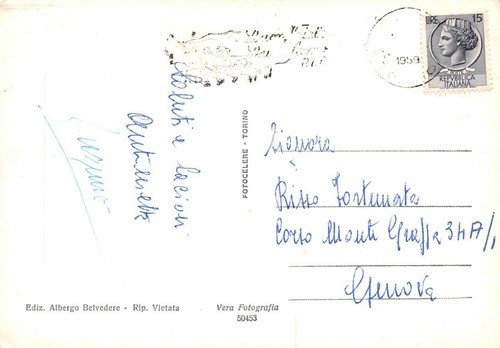 LIRE 15
REPUBBLICA
ITALIANA
1959
Saluti e baciori
Antonietta
FOTOCELERE - TORINO
Signora
Risso Fortunata
Corso Monte Grappa 34A/1
Genova
Ediz. Albergo Belvedere - Rip. Vietata
Vera Fotografia
50453